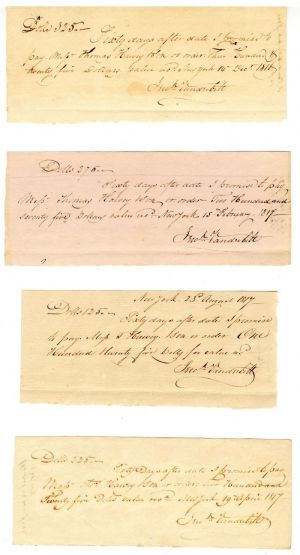 Dolls 325.—
Sixty days after date I promise to
pay Messrs Thomas Harvey & Son or order Three Hundred &
twenty five Dollars value recd New York 14 Decr 1816
Jno. Vanderbilt
Dolls 275.—
Sixty days after date I promise to pay
Messrs Thomas Harvey & Son or order Two Hundred and
seventy five Dollars value recd New York 15 February 1817
Vanderbilt
New York 25 August 1817
Dolls 125.—
Sixty days after date I promise
to pay Messrs T Harvey & Son or order One
Hundred twenty five Dolls for value recd
Vanderbilt
Dolls 325.—
days after date I promise to pay
Messrs Harvey & Son or order Three Hundred and
Twenty five Dolls value recd New York 19 April 1817
Vanderbilt